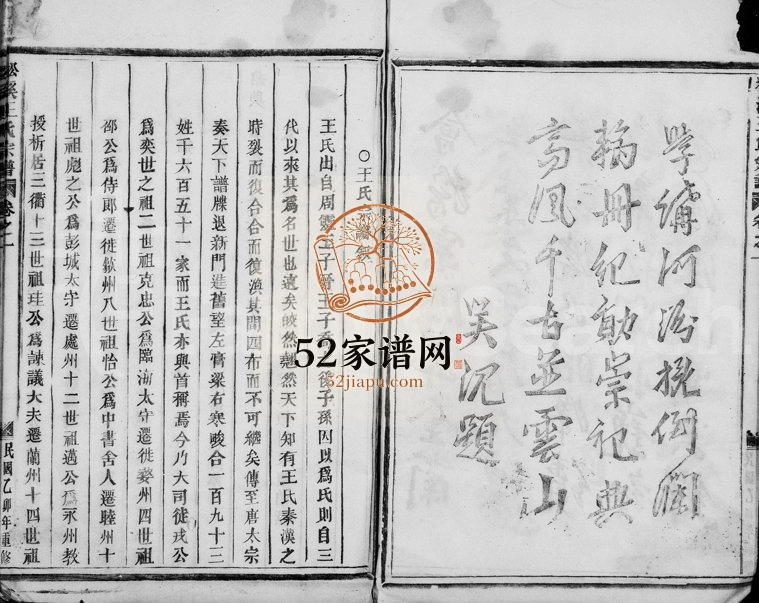 學
河汾
冊紀勛崇祀典
高風千古並雲山
吴沉題
○王氏
王氏出自周靈王子晉王子 後子孫因以爲氏則自三
代以來其爲名世也遠矣皎然 然天下知有王氏秦漢之
時裂而復合合而復渙其間四布而不可纘矣傳至唐太宗
奏天下譜牒退新門進舊望左膏粱右寒畯合一百九十三
姓千六百五十一家而王氏亦與首稱焉今乃大司徒戎公
爲奕世之祖二世祖克忠公爲臨海太守遷徙婺州四世祖
邵公爲侍郎遷徙歙州八世祖怡公爲中書舍人遷睦州十
世祖彪之公爲彭城太守遷處州十二世祖邁公爲永州教
授析居三衢十三世祖珪公爲諫議大夫遷蘭州十四世祖
王氏宗譜 卷之一
民國乙卯年重修
52家谱网
52jiapu.com